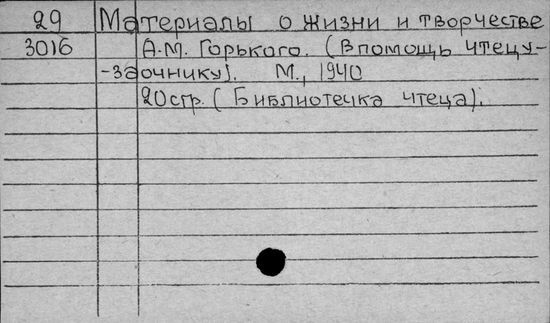 29 Материалы о жизни и творчестве
3016 А.М. Горького. (В помощь чтецу-
-заочнику). М., 1940
20 стр. (Библиотечка чтеца).